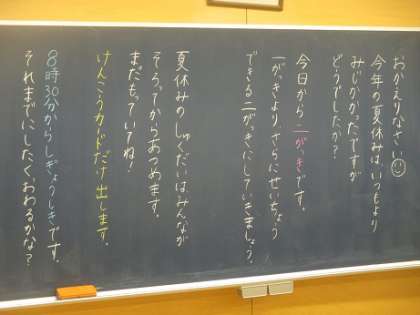 おかえりなさい
今年の夏休みは、いつもより
みじかかったですが
どうでしたか？
今日から二がっきです。
一がっきよりさらにせいちょう
できる二がっきにしていきましょう。
夏休みのしゅくだいはみんなが
そろってからあつめます。
まだもっていてね！
けんこうカードだけ出します。
8時30分からしぎょうしきです。
それまでにしたく、おわるかな？